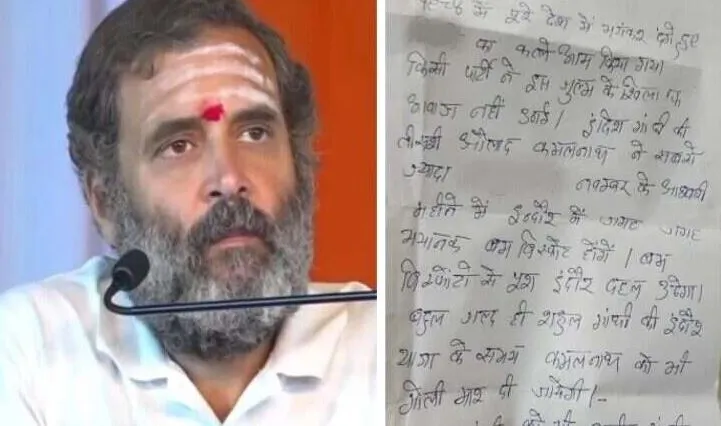 में पूरे देश में भयंकर दंगे हुए
का कत्ले आम किया गया
किसी पार्टी ने इस जुल्म के खिलाफ
आवाज नहीं उठाई। इंदिरा गांधी की
तीसरी औलाद कमलनाथ ने सबसे
ज्यादा नवम्बर के आखरी
महीने में इन्दौर में जगह जगह
भयानक बम विस्फोट होंगें। बम
विस्फोटो से पूरा इंदौर दहल उठेगा।
बहुत जल्द ही राहुल गांधी की इंदौर
यात्रा के समय कमलनाथ को भी
गोली मार दी जायेगी।-